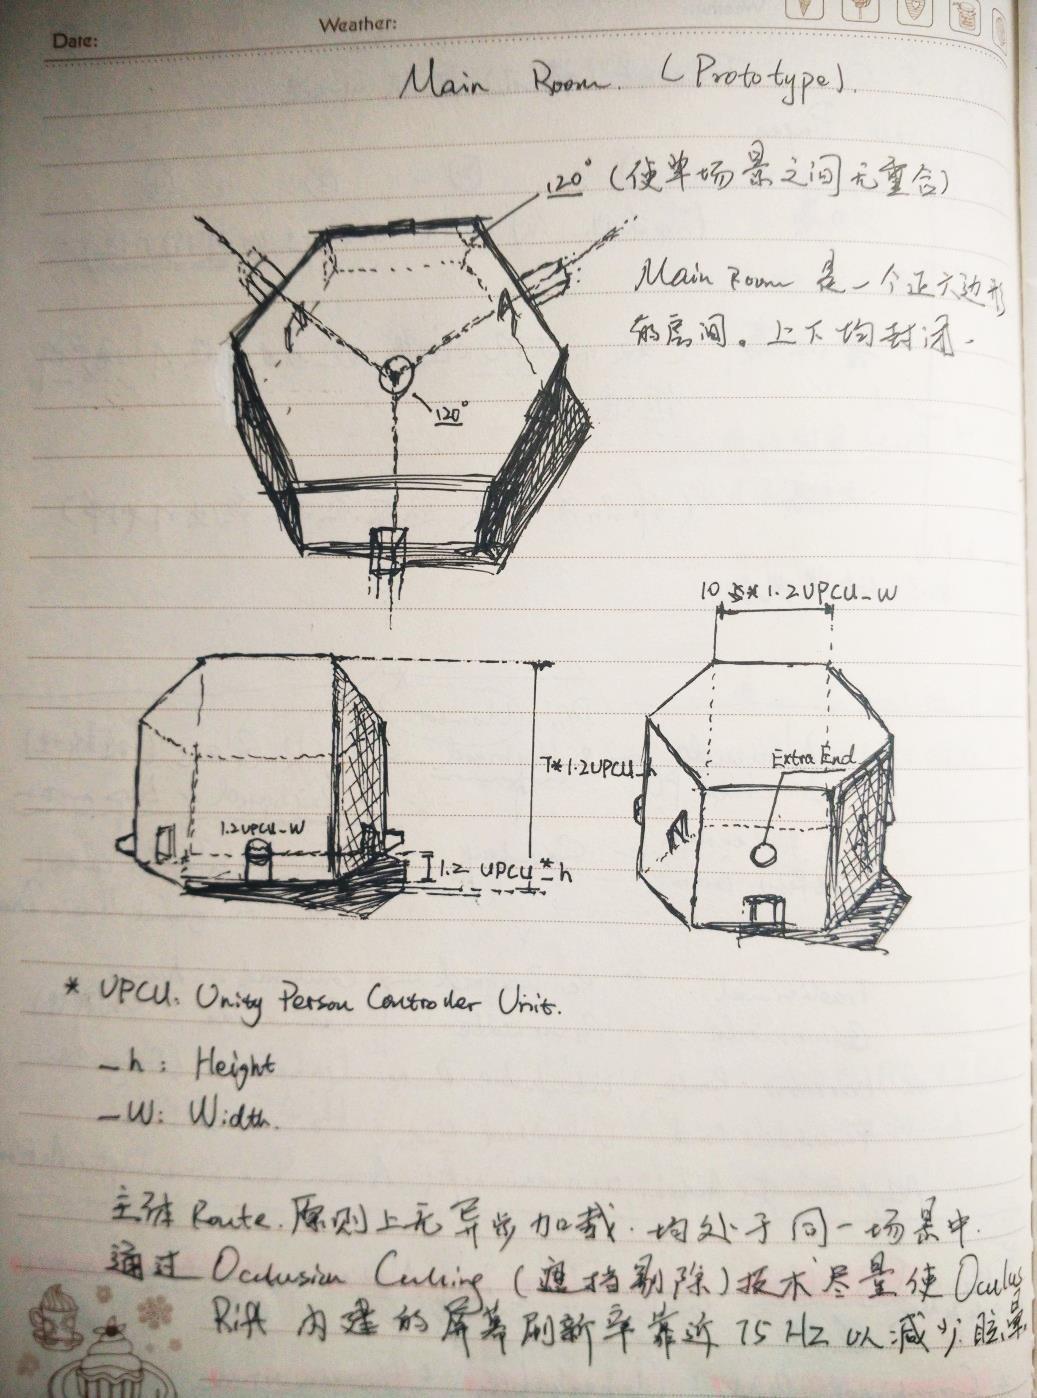 Date:
Weather:
Main Room. (Prototype).
120° (使单场景之间无重合)
Main Room 是一个正六边形
的房间。上下均封闭.
120°
10 * 1.2UPCU_W
7*1.2UPCU_h
Extra End
1.2UPCU_W
1.2 UPCU*_h
* UPCU: Unity Person Controller Unit.
_h: Height
_W: Width.
主体 Route. 原则上无异步加载. 均处于同一场景中.
通过 Occlusion Culling (遮挡剔除) 技术尽量使 Oculus
Rift 内建的屏幕刷新率靠近 75HZ 以减少眩晕